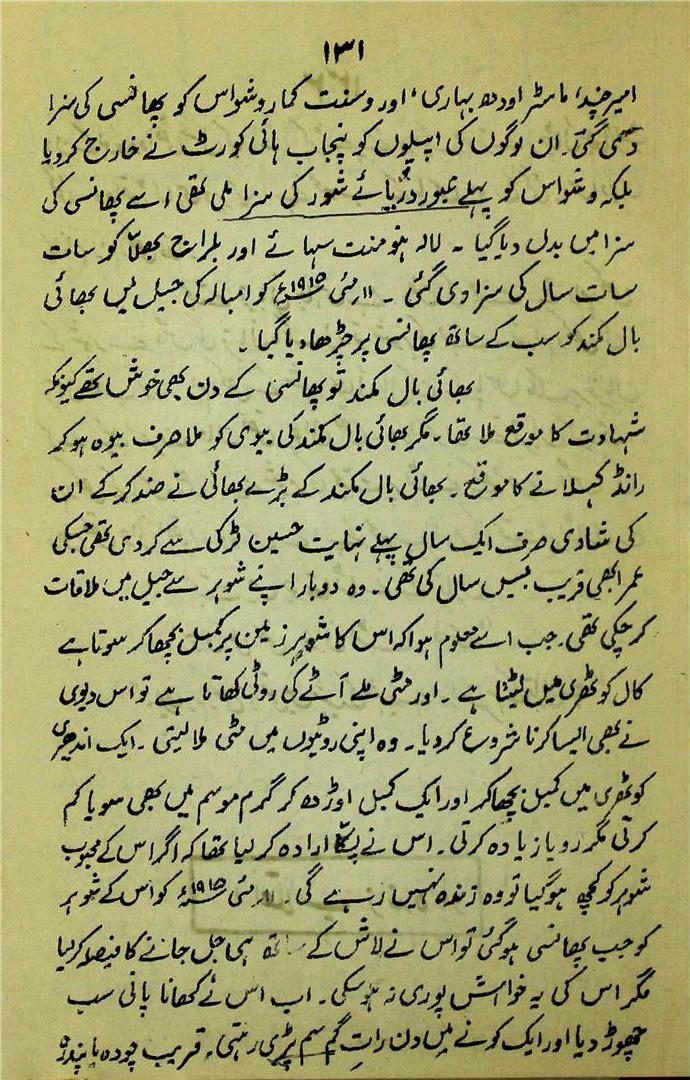 ۱۳۱
امیر چند، ماسٹر اودھ بہاری، اور وسنت کمار وشواس کو پھانسی کی سزا
دی گئی۔ ان لوگوں کی اپیلوں کو پنجاب ہائی کورٹ نے خارج کر دیا
بلکہ وشواس کو پہلے عبور دریائے شور کی سزا ملی تھی اسے پھانسی کی
سزا میں بدل دیا گیا ۔ لالہ ہنومنت سہائے اور بلراج بھلّا کو سات
سات سال کی سزا دی گئی ۔ ۱۱ مئی ۱۹۱۵ء کو امبالہ کی جیل میں بھائی
بال مکند کو سب کے ساتھ پھانسی پر چڑھا دیا گیا ۔
بھائی بال مکند تو پھانسی کے دن بھی خوش تھے کیونکہ
شہادت کا موقع ملا تھا۔ مگر بھائی بال مکند کی بیوی کو ملا صرف بیوہ ہو کر
رانڈ کہلانے کا موقع ۔ بھائی بال مکند کے بڑے بھائی نے ضد کر کے ان
کی شادی صرف ایک سال پہلے نہایت حسین لڑکی سے کر دی تھی جسکی
عمر ابھی قریب بیس سال کی تھی۔ وہ دوبار اپنے شوہر سے جیل میں ملاقات
کر چکی تھی۔ جب اسے معلوم ہوا کہ اس کا شوہر زمین پر کمبل بچھا کر سوتا ہے
کال کوٹھری میں لیٹتا ہے ۔ اور مٹی ملے آٹے کی روٹی کھاتا ہے تو اس دیوی
نے بھی ایسا کرنا شروع کر دیا۔ وہ اپنی روٹیوں میں مٹی ملا لیتی ۔ ایک اندھیری
کوٹھری میں کمبل بچھا کر اور ایک کمبل اوڑھ کر گرم موسم میں بھی سویا کم
کرتی مگر رویا زیادہ کرتی۔ اس نے پکّا ارادہ کر لیا تھا کہ اگر اس کے محبوب
شوہر کو کچھ ہو گیا تو وہ زندہ نہیں رہے گی۔ ۱۱ مئی ۱۹۱۵ء کو اس کے شوہر
کو جب پھانسی ہو گئی تو اس نے لاش کے ساتھ ہی جل جانے کا فیصلہ کر لیا
مگر اس کی یہ خواہش پوری نہ ہو سکی۔ اب اس نے کھانا پانی سب
چھوڑ دیا اور ایک کونے میں دن رات گم سم پڑی رہتی۔ قریب چودہ یا پندرہ